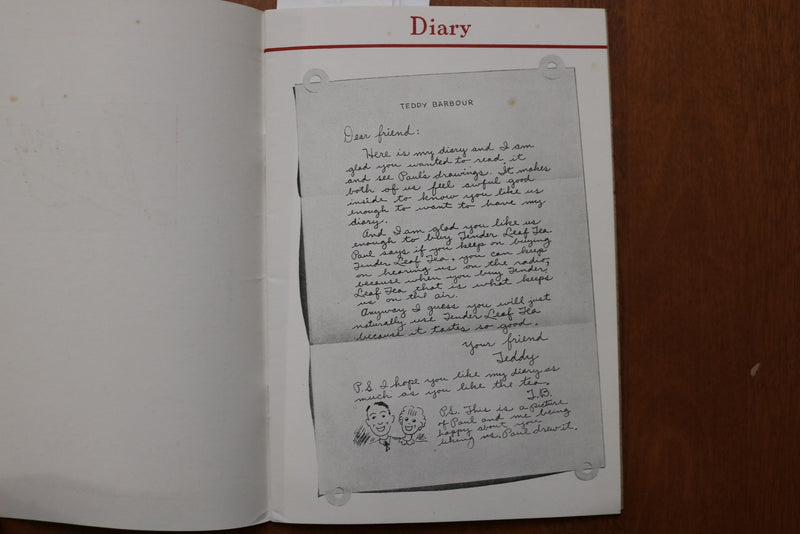 Diary
TEDDY BARBOUR
Dear friend:
Here is my diary and I am
glad you wanted to read it
and see Paul's drawings. It makes
both of us feel awful good
inside to know you like us
enough to want to have my
diary.
And I am glad you like us
enough to buy Tender Leaf Tea.
Paul says if you keep on buying
Tender Leaf Tea, you can keep
on hearing us on the radio,
because when you buy Tender
Leaf Tea that is what keeps
us on the air.
Anyway I guess you will just
naturally use Tender Leaf Tea
because it tastes so good.
Your friend
Teddy
P.S. I hope you like my diary as
much as you like the tea.
T.B.
P.S. This is a picture
of Paul and me being
happy about you
liking us. Paul drew it.